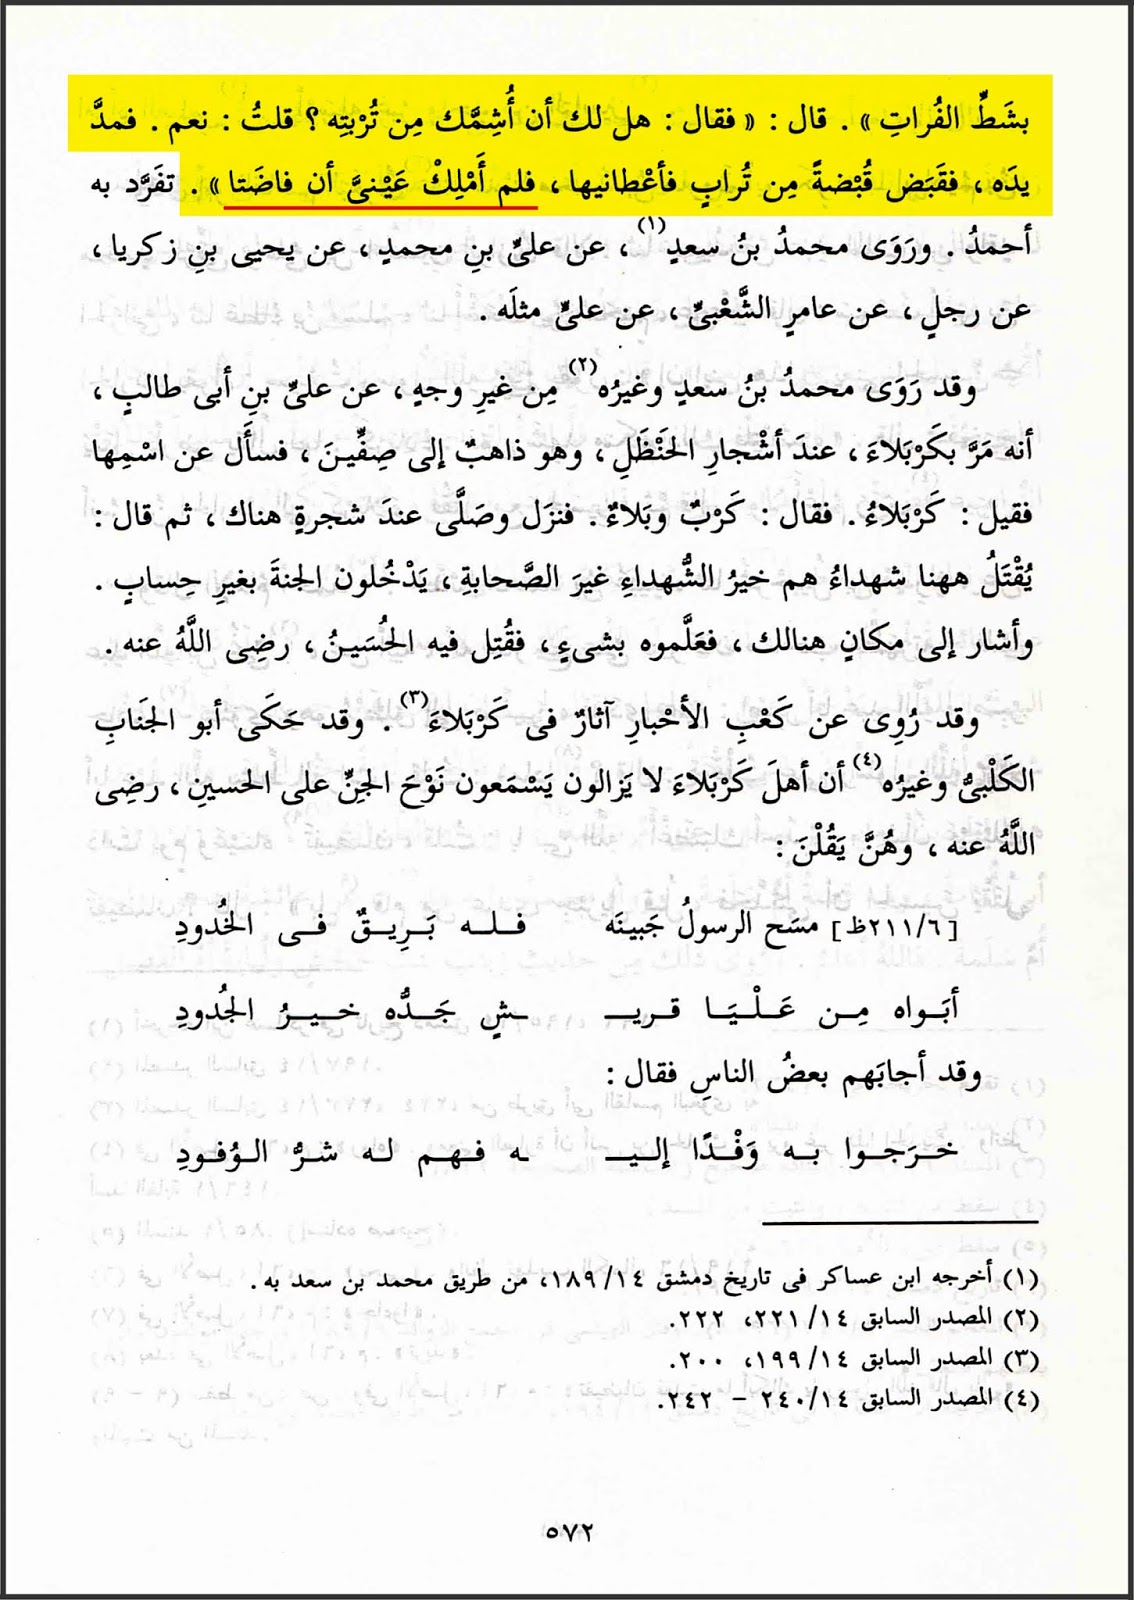 بشَطِّ الفُراتِ » . قال : « فقال : هل لك أن أُشِمَّك مِن تُرْبتِه ؟ قلتُ : نعم . فمدَّ
يدَه ، فقبَض قُبْضةً مِن تُرابٍ فأعْطانيها ، فلم أَمْلِكْ عَيْنيَّ أن فاضَتا » . تفَرَّد به
أحمدُ . ورَوَى محمدُ بنُ سعدٍ(١) ، عن عليِّ بنِ محمدٍ ، عن يحيى بنِ زكريا ،
عن رجلٍ ، عن عامرٍ الشَّعْبيِّ ، عن عليٍّ مثلَه .
وقد رَوَى محمدُ بنُ سعدٍ وغيرُه(٢) مِن غيرِ وجهٍ ، عن عليِّ بنِ أبى طالبٍ ،
أنه مَرَّ بكَرْبَلاءَ ، عندَ أشْجارِ الحَنْظَلِ ، وهو ذاهبٌ إلى صِفِّينَ ، فسأَل عن اسْمِها
فقيل : كَرْبَلاءُ . فقال : كَرْبٌ وبَلاءٌ . فنزَل وصَلَّى عندَ شجرةٍ هناك ، ثم قال :
يُقْتَلُ ههنا شهداءُ هم خيرُ الشُّهداءِ غيرَ الصَّحابةِ ، يَدْخُلون الجنةَ بغيرِ حِسابٍ .
وأشار إلى مكانٍ هنالك ، فعَلَّموه بشىءٍ ، فقُتِل فيه الحُسَينُ ، رضِى اللَّهُ عنه .
وقد رُوِى عن كَعْبِ الأحْبارِ آثارٌ فى كَرْبَلاءَ(٣) . وقد حَكَى أبو الجَنابِ
الكَلْبىُّ وغيرُه(٤) أن أهلَ كَرْبَلاءَ لا يَزالون يَسْمَعون نَوْحَ الجنِّ على الحسينِ ، رضِى
اللَّهُ عنه ، وهُنَّ يَقُلْنَ :
[٢١١/٦ظ] مسَح الرسولُ جَبينَه فلـه بَرِيقٌ فـى الخُدودِ
أبَواه مِـن عَـلْـيَـا قريـ ـشٍ جَـدُّه خيـرُ الجُدودِ
وقد أجابَهم بعضُ الناسِ فقال :
خـرَجـوا بـه وَفْـدًا إليـ ـه فـهـم لـه شرُّ الـوُفودِ
(١) أخرجه ابن عساكر فى تاريخ دمشق ١٨٩/١٤، من طريق محمد بن سعد به .
(٢) المصدر السابق ٢٢١/١٤، ٢٢٢.
(٣) المصدر السابق ١٩٩/١٤، ٢٠٠.
(٤) المصدر السابق ٢٤٠/١٤ – ٢٤٢.
٥٧٢